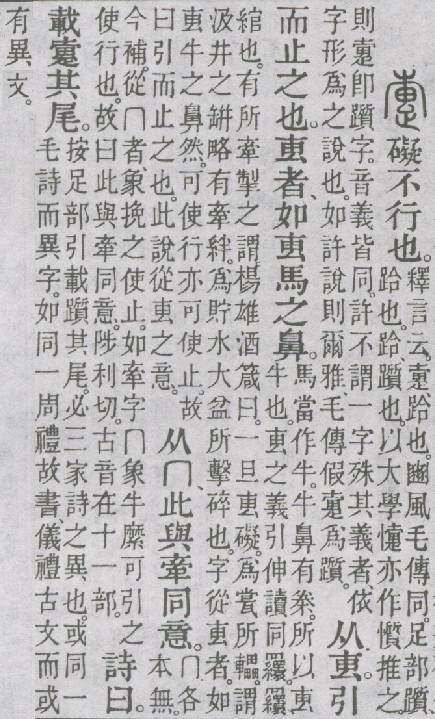 疐礙不行也。釋言云。疐跲也。豳風毛傳同。足部躓、
跲也。跲、躓也。以大學懥亦作懫推之。
則疐卽躓字。音義皆同。許不謂一字殊其義者。依
字形爲之說也。如許說則爾雅、毛傳假疐爲躓。从叀。引
而止之也。叀者、如叀馬之鼻。馬當作牛。牛鼻有桊。所以叀
牛也。叀之義引伸讀同
綰也。有所牽掣之謂。楊雄酒箴曰。一旦叀礙。爲瓽所轠。謂
汲井之缾略有牽絆。爲貯水大盆所擊碎也。字從叀者。如
叀牛之鼻然。可使行亦可使止。故
曰引而止之也。此說從叀之意。从冂。此與牽同意。冂各
本無。
今補。從冂者、象挽之使止。如牽字冂象牛縻可引之
使行也。故曰此與牽同意。陟利切。古音在十一部。詩曰。
載疐其尾。按足部引載躓其尾。必三家詩之異也。或同一
毛詩而異字。如同一周禮故書、儀禮古文而或
有異文。